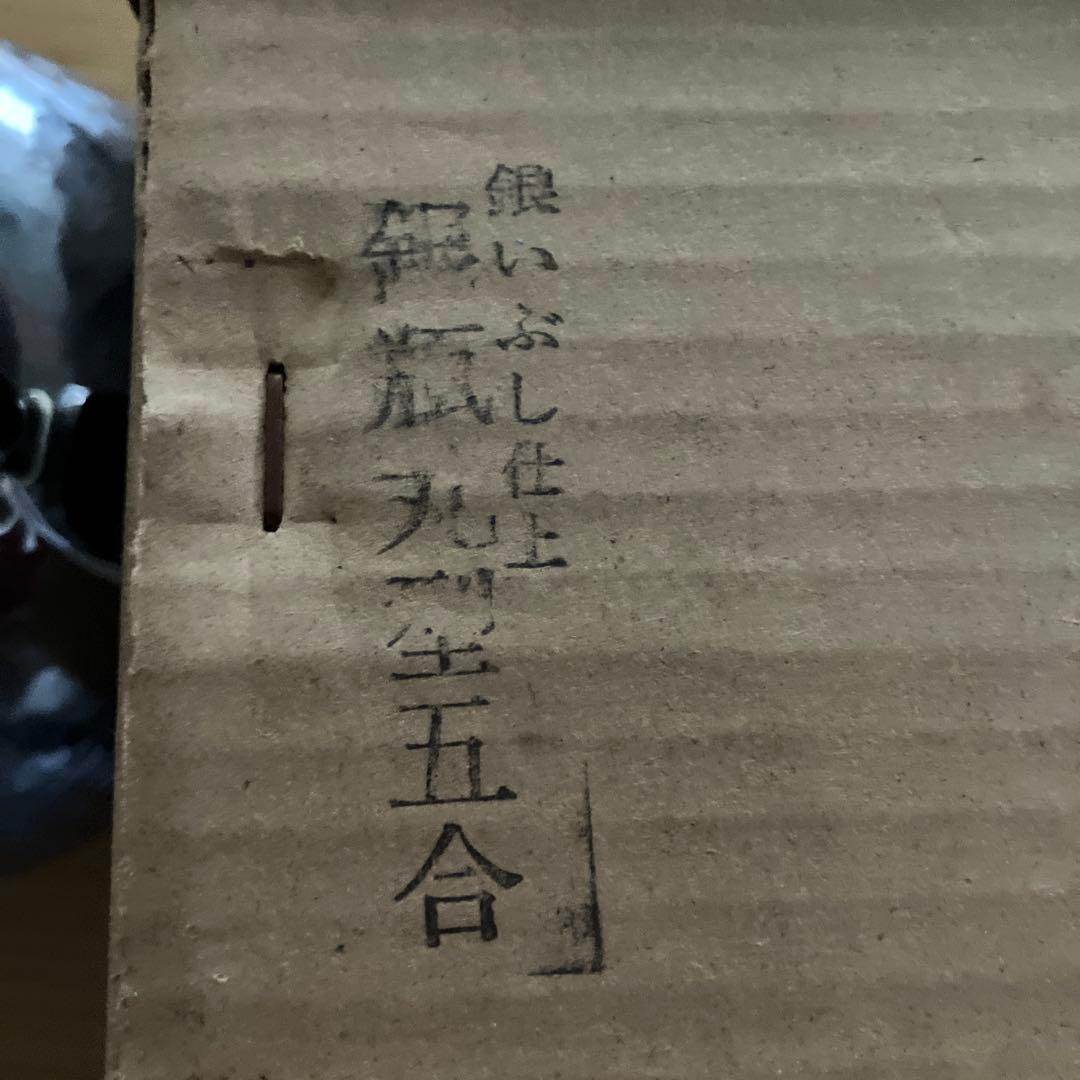 銀いぶし仕上
銀瓶丸型五合